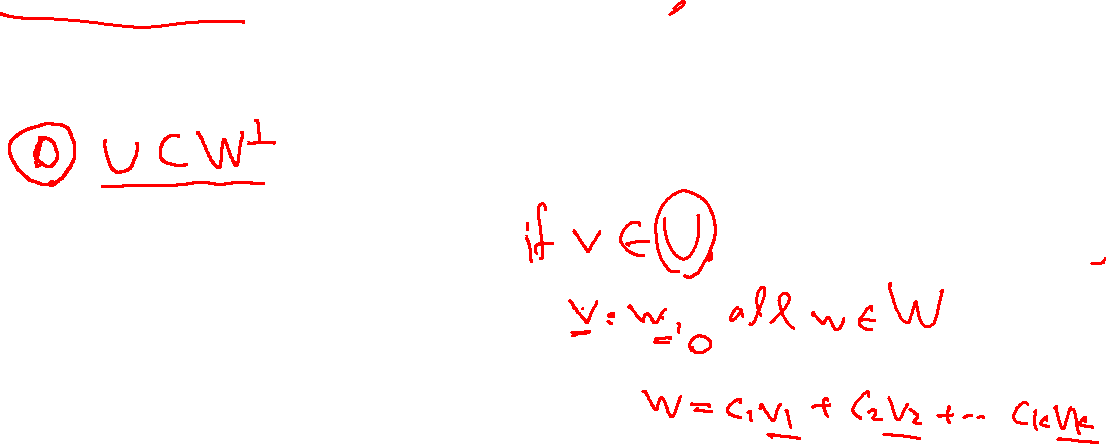 ⓪ U ⊂ W^⊥
if v ∈ U
v · w = 0 all w ∈ W
w = c₁v₁ + c₂v₂ + ... cₖvₖ